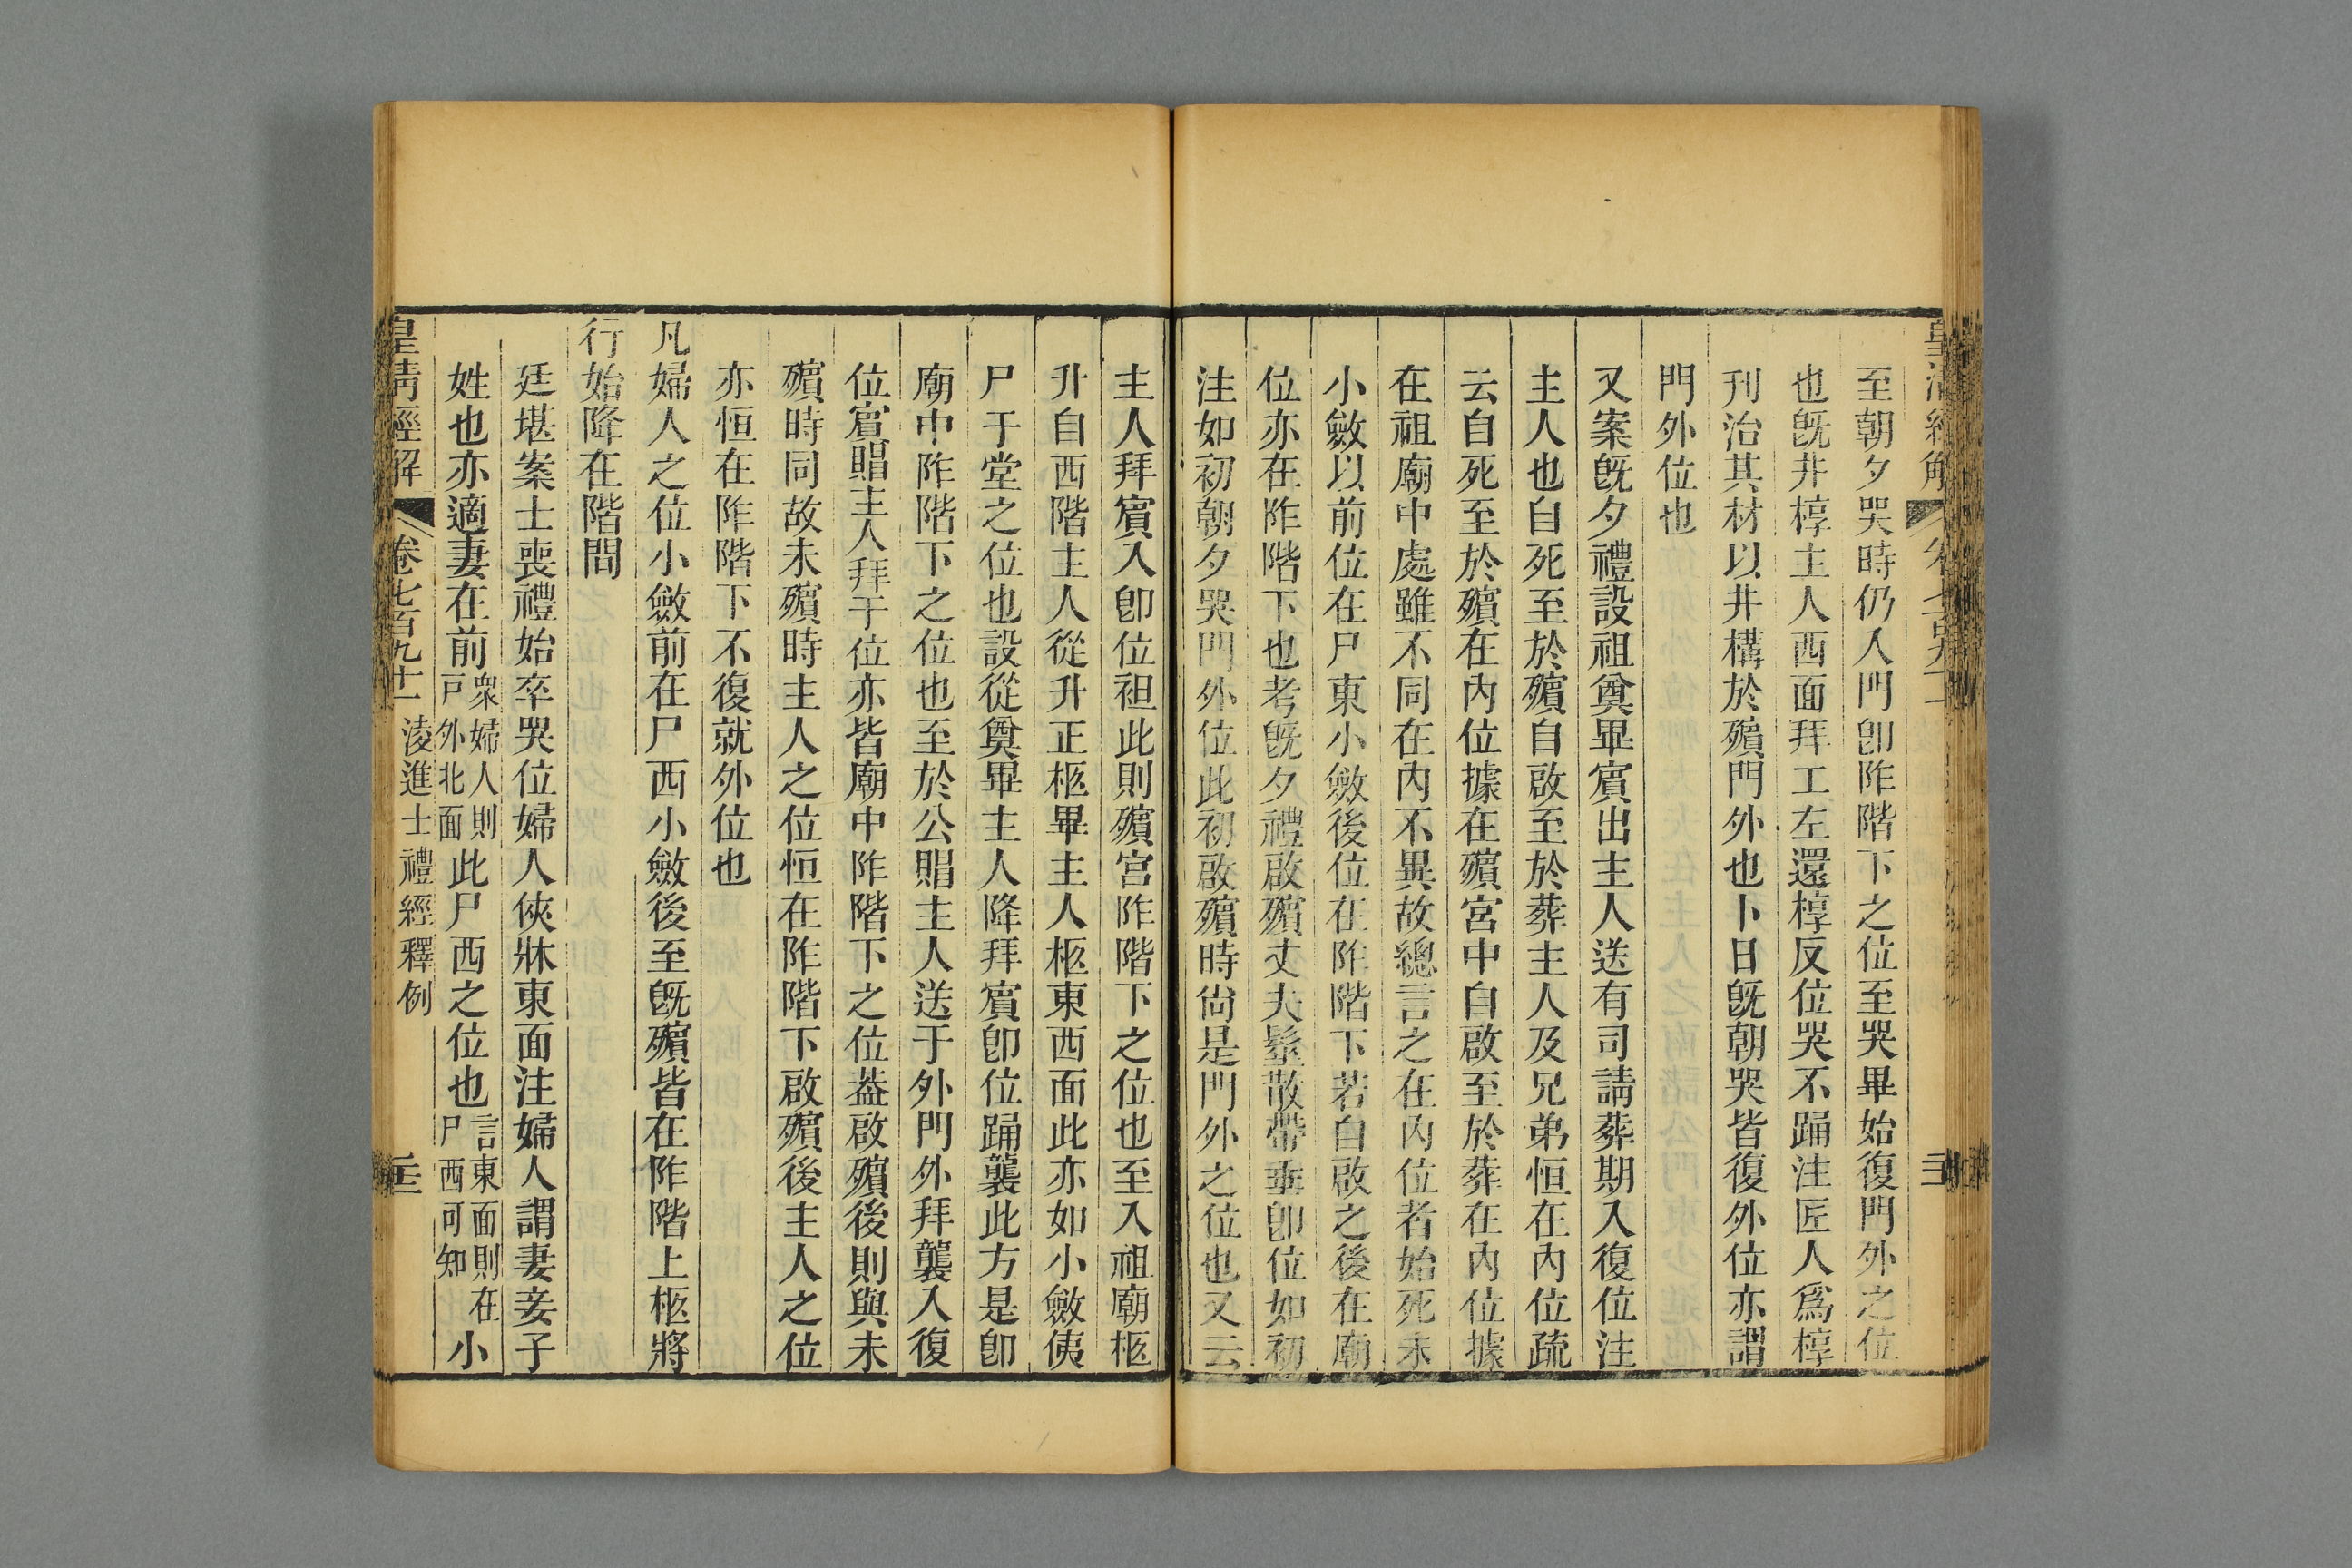 至朝夕哭時仍入門卽阼階下之位至哭畢始復門外之位
也旣井椁主人西面拜工左還椁反位哭不踊注匠人爲椁
刊治其材以井構於殯門外也卜日旣朝哭皆復外位亦謂
門外位也
又案旣夕禮設祖奠畢賓出主人送有司請葬期入復位注
主人也自死至於殯自啟至於葬主人及兄弟恒在內位疏
云自死至於殯在內位據在殯宮中自啟至於葬在內位據
在祖廟中處雖不同在內不異故總言之在內位者始死未
小斂以前位在尸東小斂後位在阼階下若自啟之後在廟
位亦在阼階下也考旣夕禮啟殯丈夫髽散帶垂卽位如初
注如初朝夕哭門外位此初啟殯時尙是門外之位也又云
主人拜賓入卽位袒此則殯宮阼階下之位也至入祖廟柩
升自西階主人從升正柩畢主人柩東西面此亦如小斂侇
尸于堂之位也設從奠畢主人降拜賓卽位踊襲此方是卽
廟中阼階下之位也至於公賵主人送于外門外拜襲入復
位賓賵主人拜于位亦皆廟中阼階下之位葢啟殯後則與未
殯時同故未殯時主人之位恒在阼階下啟殯後主人之位
亦恒在阼階下不復就外位也
凡婦人之位小斂前在尸西小斂後至旣殯皆在阼階上柩將
行始降在階間
廷堪案士喪禮始卒哭位婦人俠牀東面注婦人謂妻妾子
姓也亦適妻在前衆婦人則戸外北面此尸西之位也言東面則在尸西可知小
皇清經解 卷七百九十一 淩進士禮經釋例